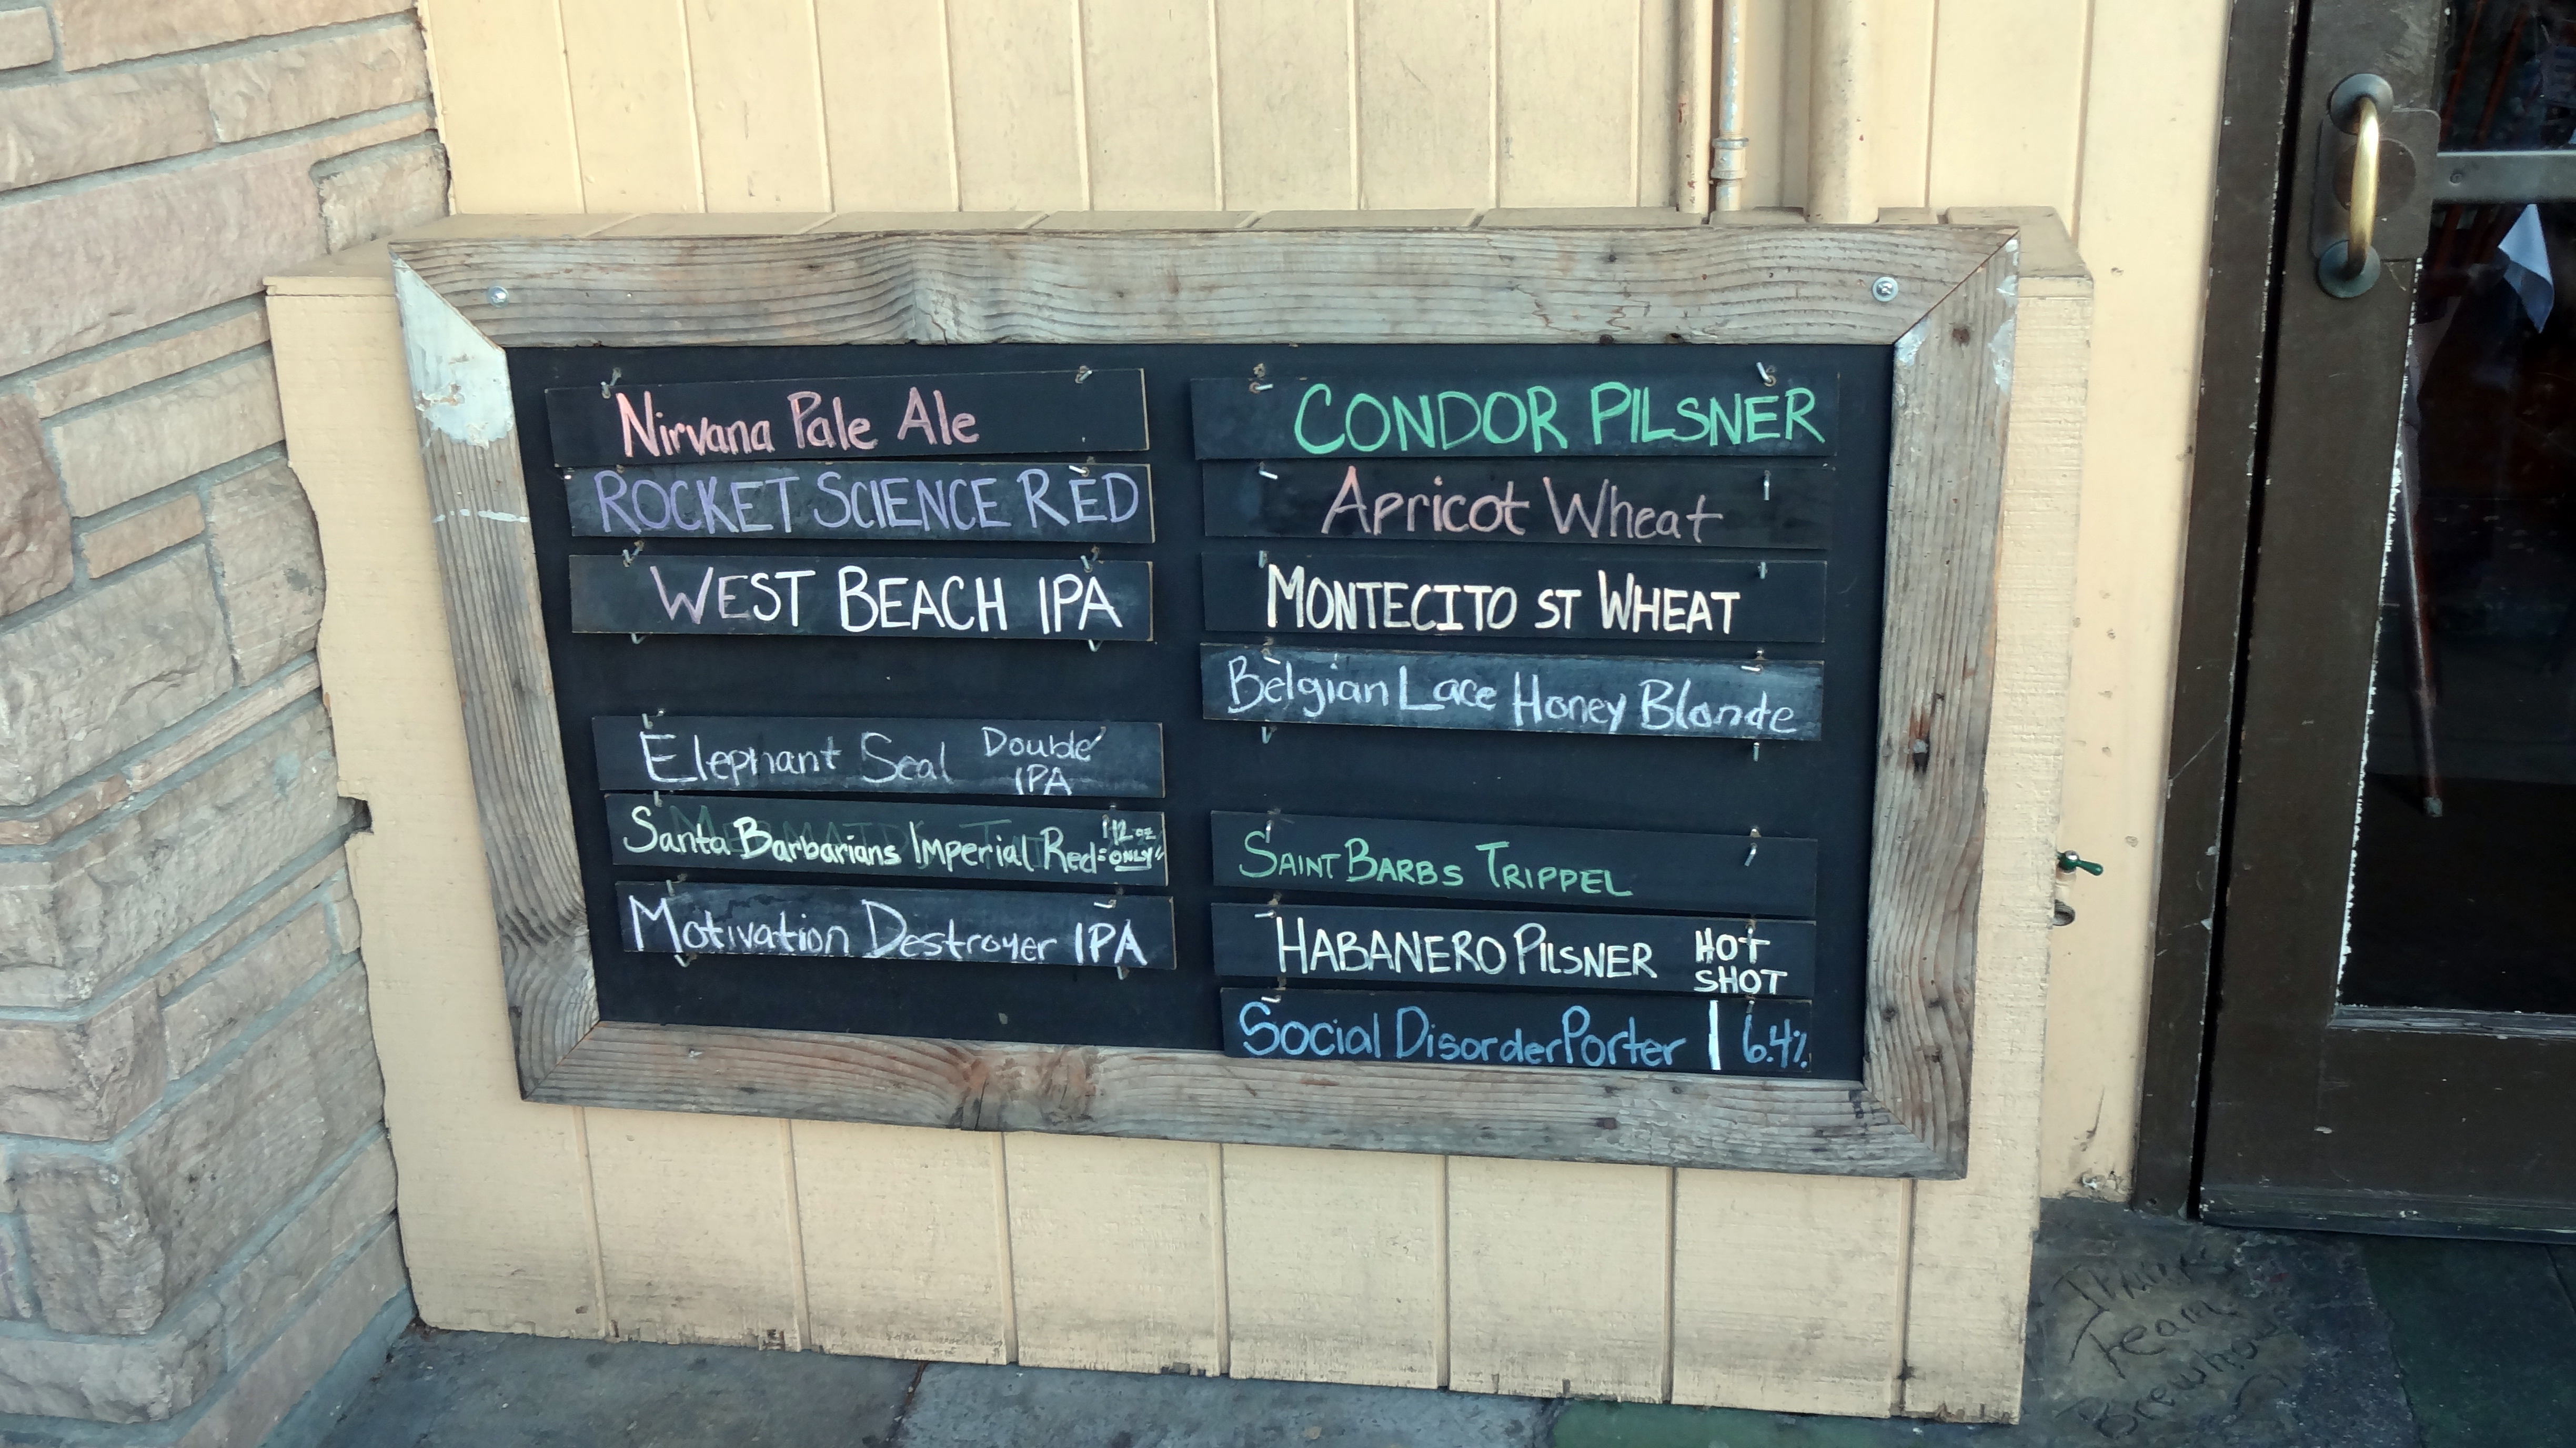 Nirvana Pale Ale
ROCKET SCIENCE RED
WEST BEACH IPA
Elephant Seal Double
IPA
Santa Barbarians Imperial Red 12 oz
ONLY
Motivation Destroyer IPA
CONDOR PILSNER
Apricot Wheat
MONTECITO ST WHEAT
Belgian Lace Honey Blonde
SAINT BARBS TRIPPEL
HABANERO PILSNER HOT
SHOT
Social Disorder Porter | 6.4%
Team